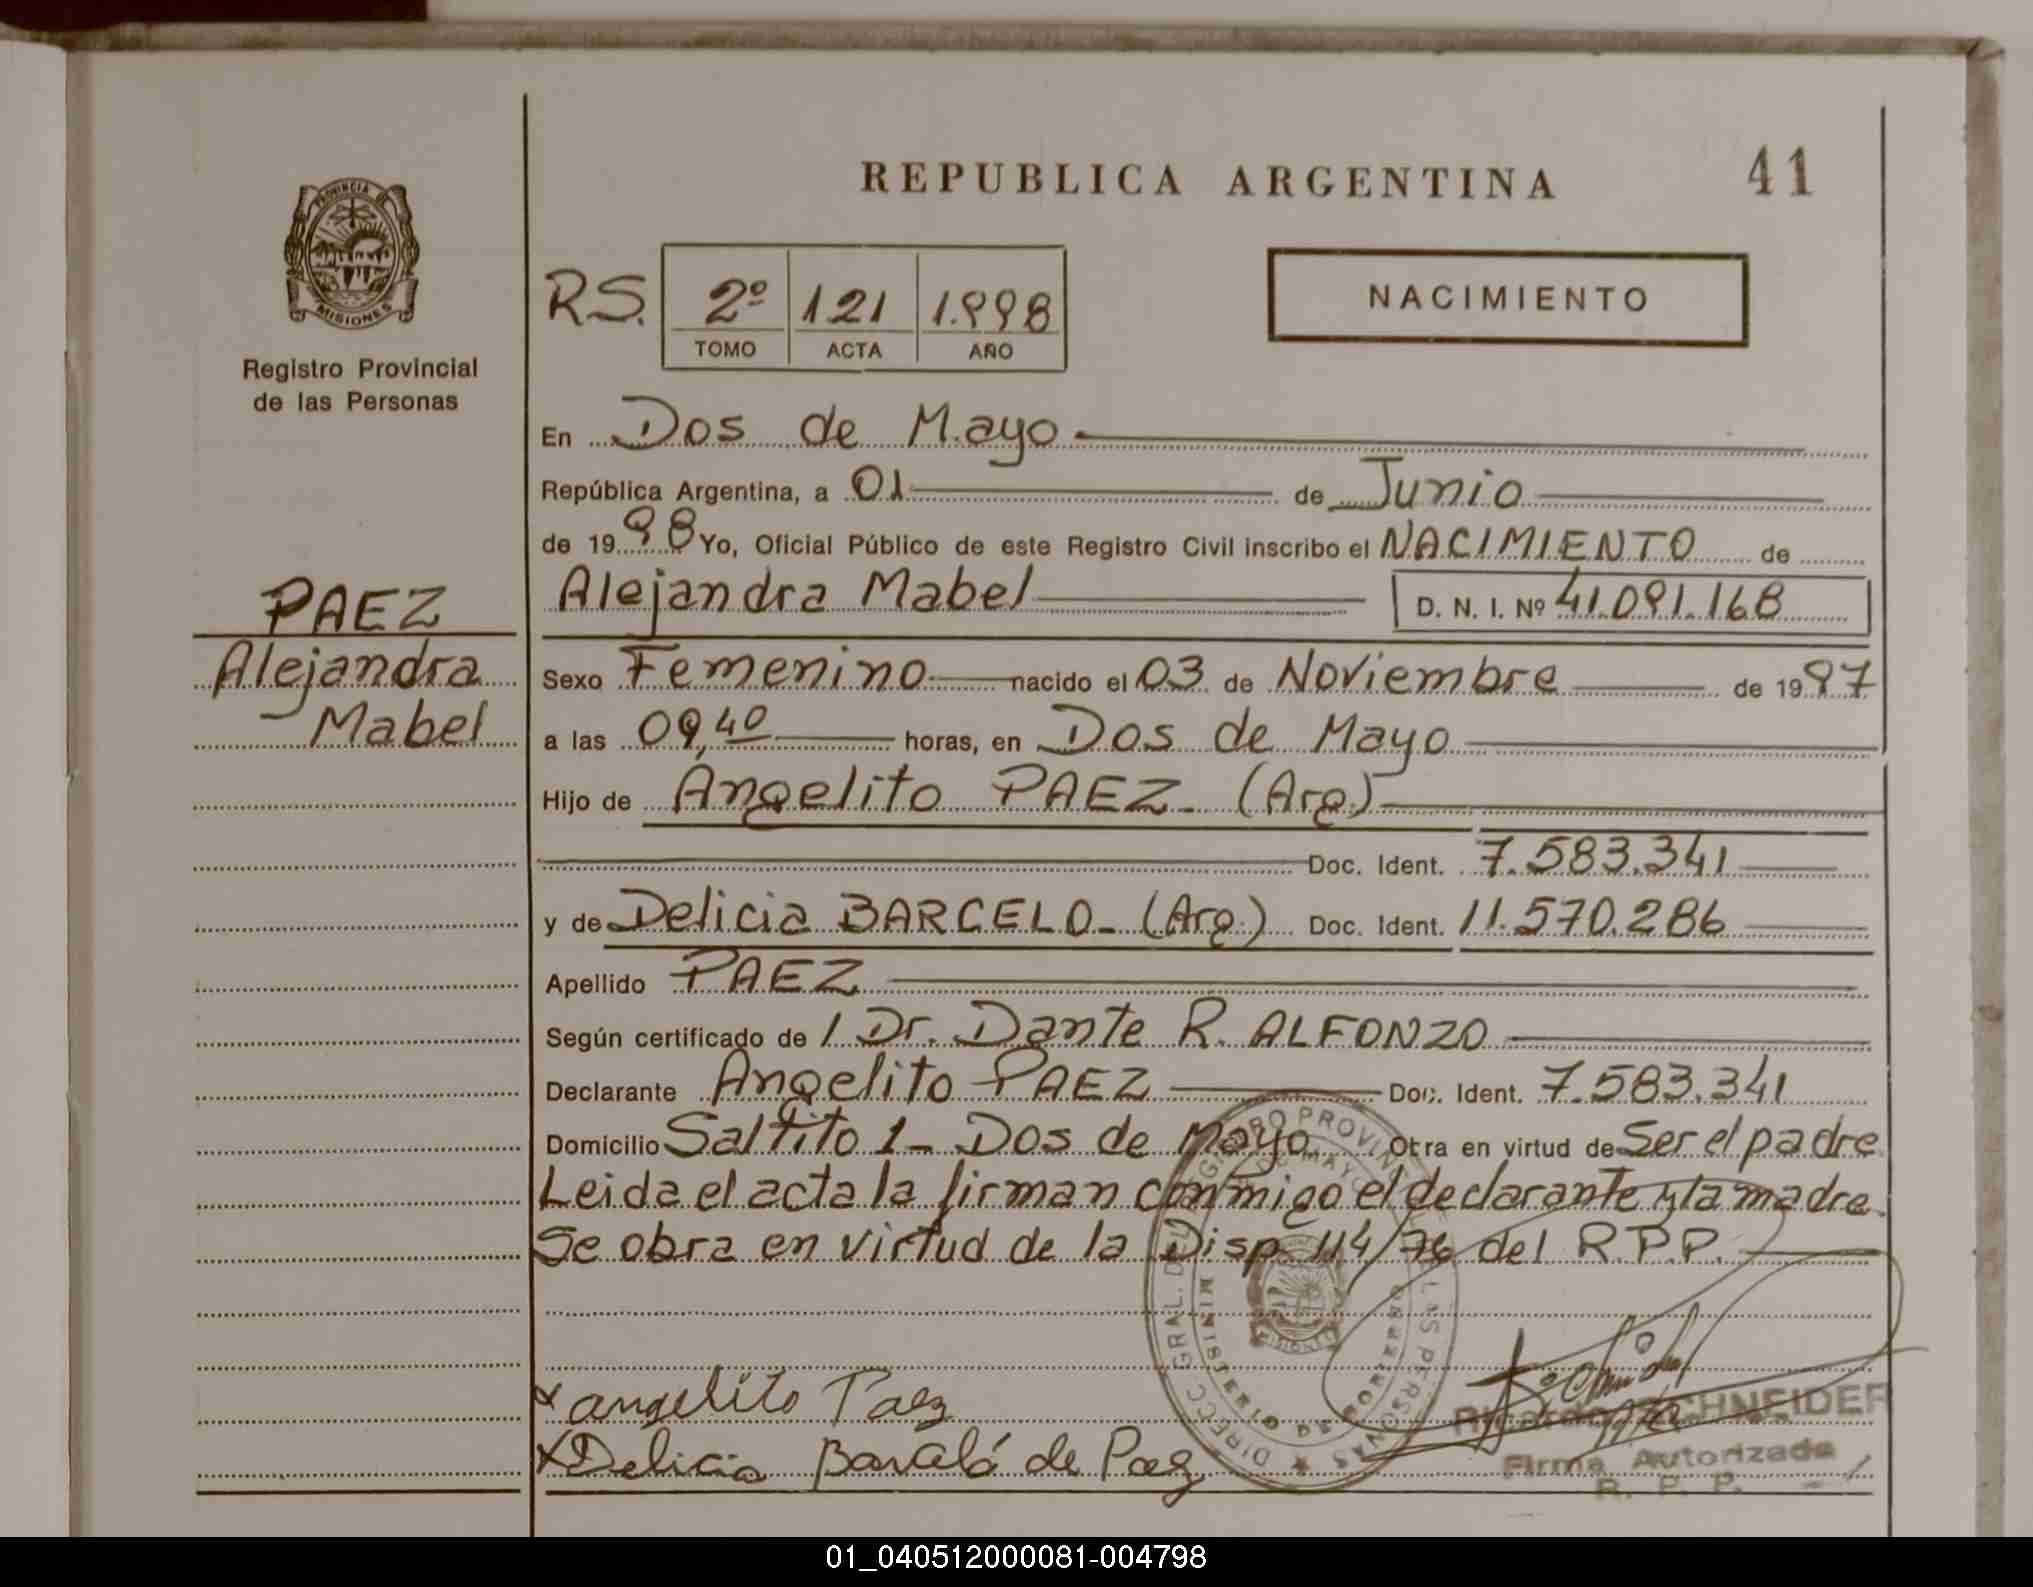 REPUBLICA ARGENTINA
41
PROVINCIA DE
MISIONES
Registro Provincial
de las Personas
RS. 2º 121 1.998
TOMO ACTA AÑO
NACIMIENTO
En Dos de Mayo
República Argentina, a 01 de Junio
de 1998 Yo, Oficial Público de este Registro Civil inscribo el NACIMIENTO de
Alejandra Mabel D. N. I. Nº 41.091.168
PAEZ
Alejandra
Mabel
Sexo Femenino nacido el 03 de Noviembre de 1997
a las 09,40 horas, en Dos de Mayo
Hijo de Angelito PAEZ - (Arg.)
Doc. Ident. 7.583.341
y de Delicia BARCELO - (Arg.) Doc. Ident. 11.570.286
Apellido PAEZ
Según certificado de / Dr. Dante R. ALFONZO
Declarante Angelito PAEZ Doc. Ident. 7.583.341
Domicilio Saltito 1 - Dos de Mayo Otra en virtud de Ser el padre
Leida el acta la firman conmigo el declarante y la madre.
Se obra en virtud de la Disp. 114/76 del R.P.P.
x angelito Paez
x Delicia Barceló de Paez
Ricardo SCHNEIDER
Firma Autorizada
R. P. P.
01_040512000081-004798